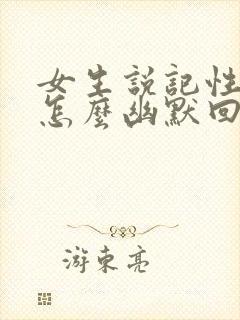 女生説記性
怎麼幽默回
游東亮